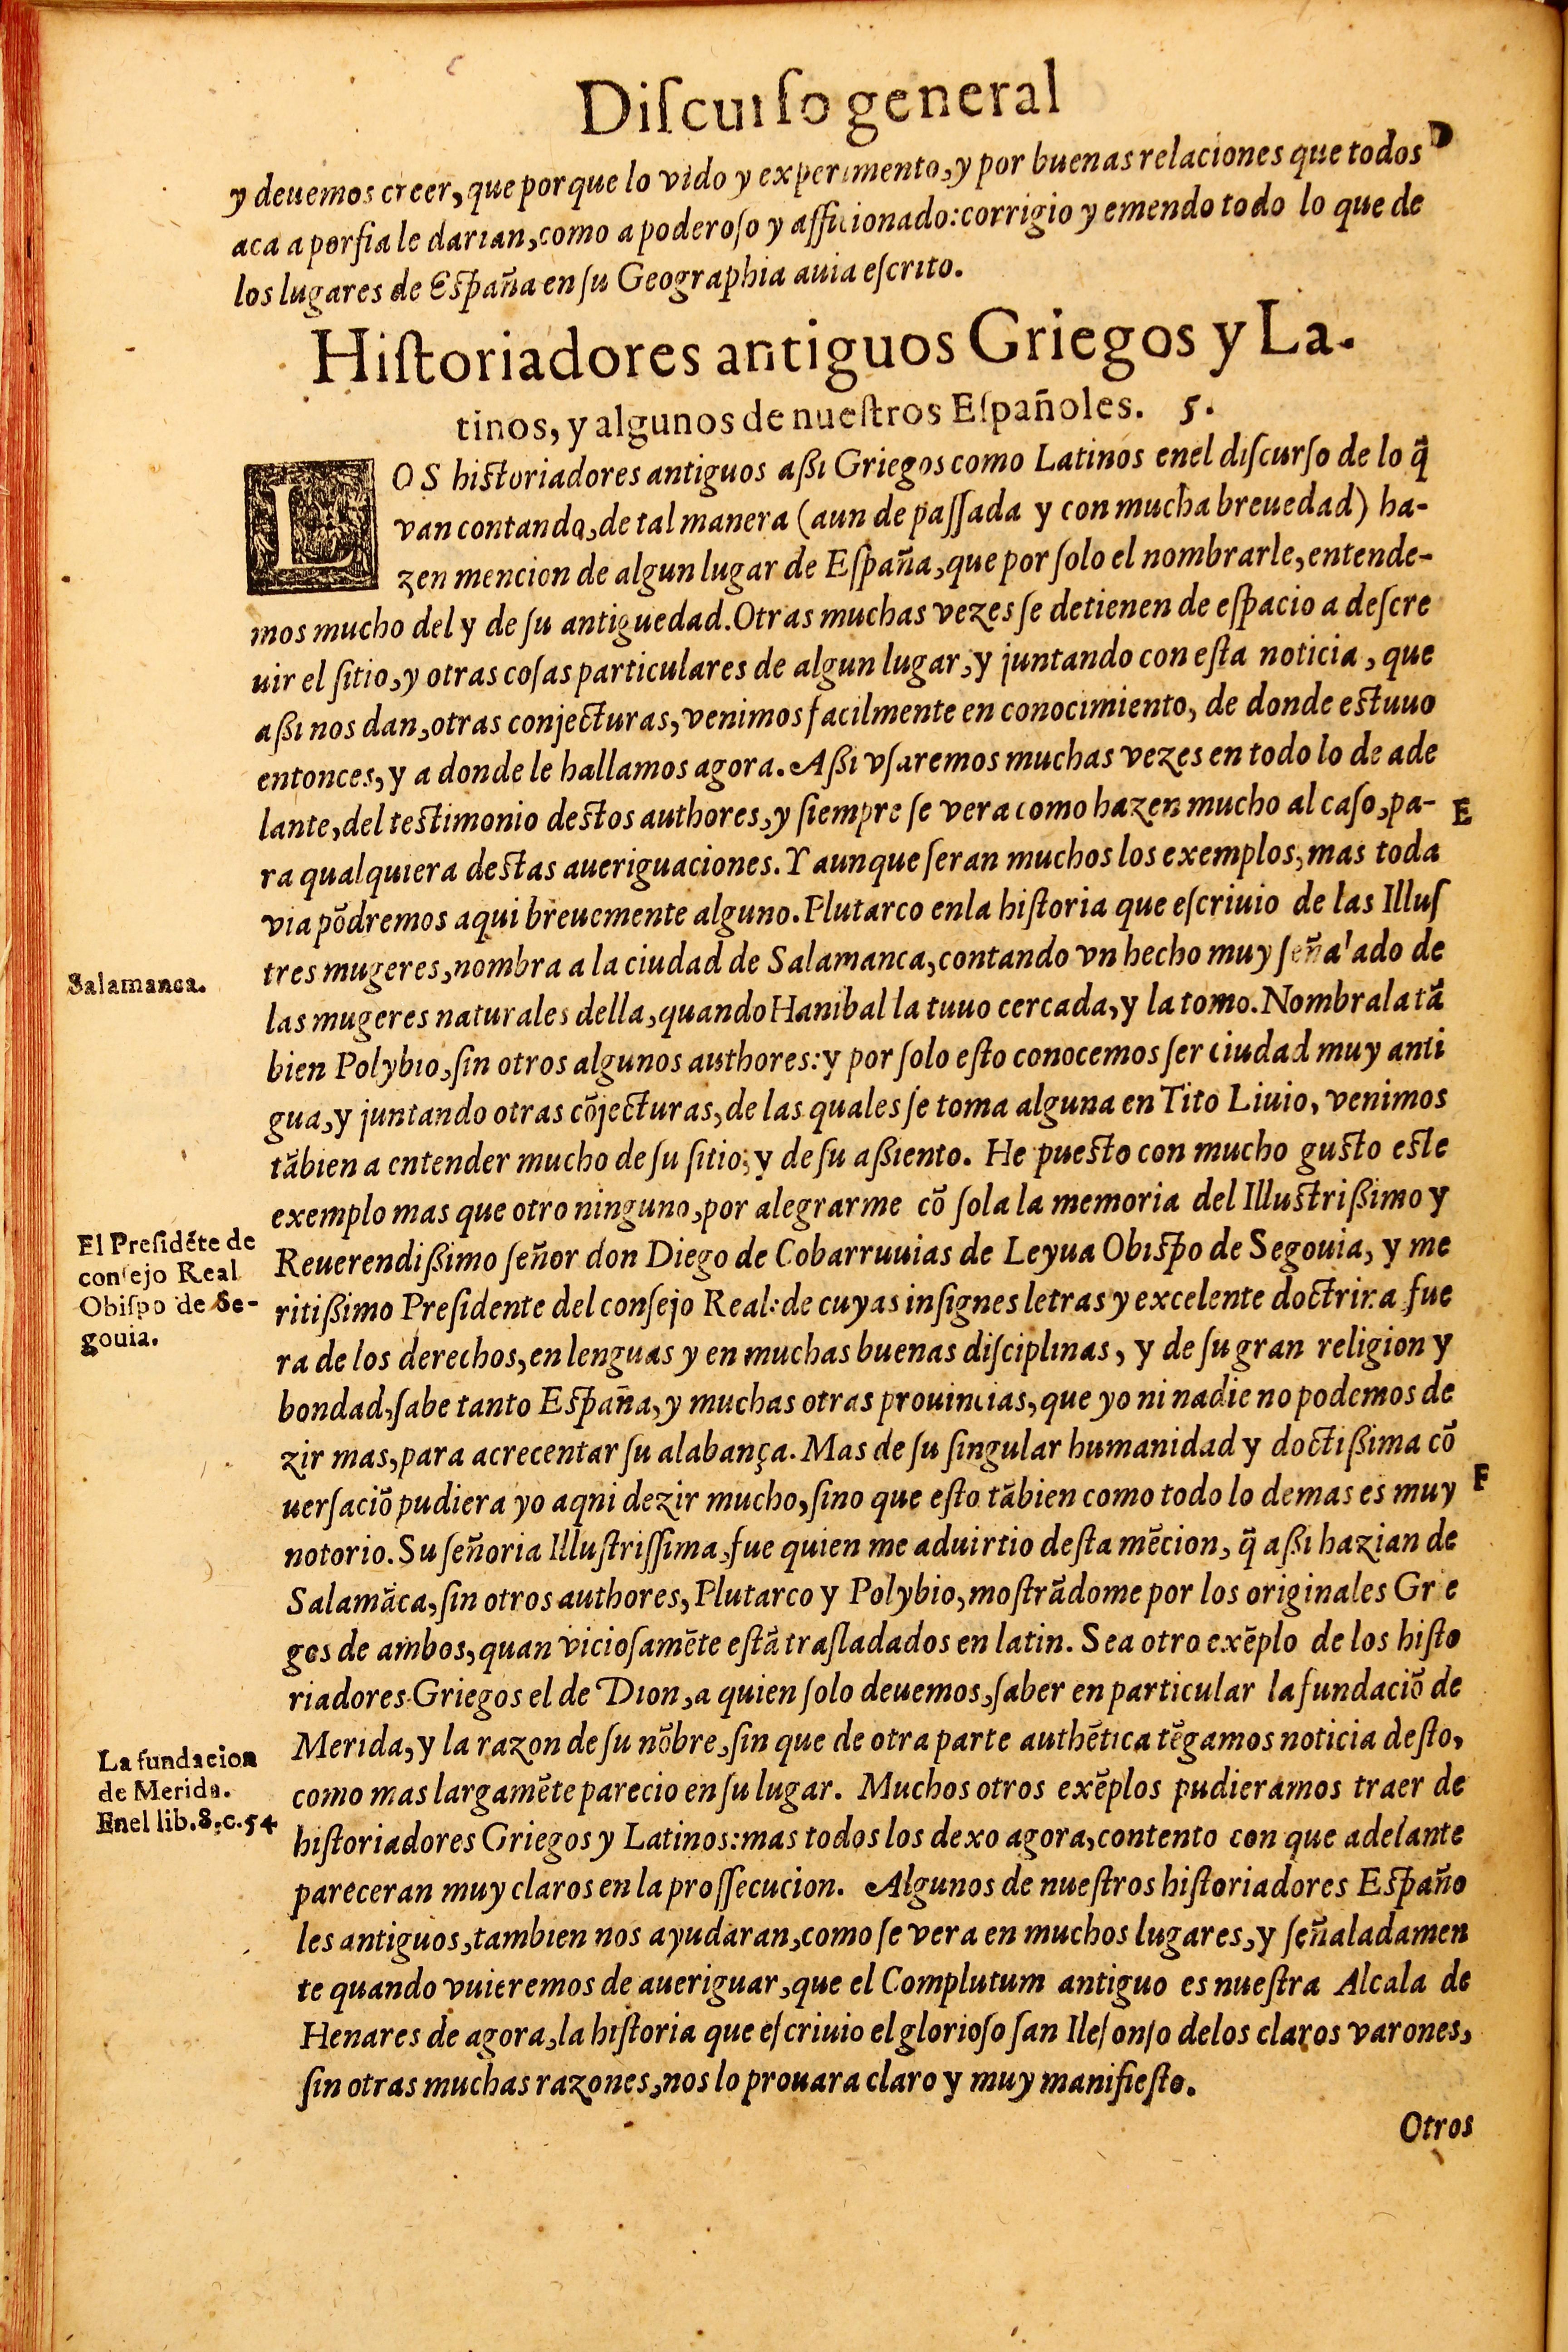 Diſcurſo general
D
y deuemos creer, que porque lo vido y experimento, y por buenas relaciones que todos
aca a porfia le darian, como a poderoſo y afficionado: corrigio y emendo todo lo que de
los lugares de España en ſu Geographia auia eſcrito.
Hiſtoriadores antiguos Griegos y La-
tinos, y algunos de nueſtros Eſpañoles. 5.
LOS hiſtoriadores antiguos aßi Griegos como Latinos enel diſcurſo de lo q̃
van contando, de tal manera (aun de paſſada y con mucha breuedad) ha-
zen mencion de algun lugar de Eſpaña, que por ſolo el nombrarle, entende-
mos mucho del y de ſu antiguedad. Otras muchas vezes ſe detienen de eſpacio a deſcre
uir el ſitio, y otras coſas particulares de algun lugar, y juntando con eſta noticia, que
aßi nos dan, otras conjecturas, venimos facilmente en conocimiento, de donde eſtuuo
entonces, y a donde le hallamos agora. Aßi vſaremos muchas vezes en todo lo de ade
lante, del teſtimonio deſtos authores, y ſiempre ſe vera como hazen mucho al caſo, pa-
E
ra qualquiera deſtas aueriguaciones. Y aunque ſeran muchos los exemplos, mas toda
via põdremos aqui breuemente alguno. Plutarco enla hiſtoria que eſcriuio de las Illuſ
tres mugeres, nombra a la ciudad de Salamanca, contando vn hecho muy ſeñalado de
Salamanca.
las mugeres naturales della, quando Hanibal la tuuo cercada, y la tomo. Nombrala tã
bien Polybio, ſin otros algunos authores: y por ſolo eſto conocemos ſer ciudad muy anti
gua, y juntando otras cõjecturas, de las quales ſe toma alguna en Tito Liuio, venimos
tãbien a entender mucho de ſu ſitio, y de ſu aßiento. He pueſto con mucho guſto eſte
exemplo mas que otro ninguno, por alegrarme cõ ſola la memoria del Illuſtrißimo y
Reuerendißimo ſeñor don Diego de Cobarruuias de Leyua Obiſpo de Segouia, y me
ritißimo Preſidente del conſejo Real: de cuyas inſignes letras y excelente doctrina fue
El Preſidẽte de
conſejo Real
Obiſpo de Se-
gouia.
ra de los derechos, en lenguas y en muchas buenas diſciplinas, y de ſu gran religion y
bondad, ſabe tanto Eſpaña, y muchas otras prouincias, que yo ni nadie no podemos de
zir mas, para acrecentar ſu alabança. Mas de ſu ſingular humanidad y doctißima cõ
F
uerſaciõ pudiera yo aqni dezir mucho, ſino que eſto tãbien como todo lo demas es muy
notorio. Su ſeñoria Illuſtriſſima, fue quien me aduirtio deſta mẽcion, q̃ aßi hazian de
Salamãca, ſin otros authores, Plutarco y Polybio, moſtrãdome por los originales Grie
gos de ambos, quan vicioſamẽte eſtã traſladados en latin. Sea otro exẽplo de los hiſto
riadores Griegos el de Dion, a quien ſolo deuemos, ſaber en particular la fundaciõ de
Merida, y la razon de ſu nõbre, ſin que de otra parte authẽtica tẽgamos noticia deſto,
La fundacion
de Merida.
Enel lib. 8. c. 54
como mas largamẽte parecio en ſu lugar. Muchos otros exẽplos pudieramos traer de
hiſtoriadores Griegos y Latinos: mas todos los dexo agora, contento con que adelante
pareceran muy claros en la proſſecucion. Algunos de nueſtros hiſtoriadores Eſpaño
les antiguos, tambien nos ayudaran, como ſe vera en muchos lugares, y ſeñaladamen
te quando vuieremos de aueriguar, que el Complutum antiguo es nueſtra Alcala de
Henares de agora, la hiſtoria que eſcriuio el glorioſo ſan Ilefonſo delos claros varones,
ſin otras muchas razones, nos lo prouara claro y muy manifieſto.
Otros